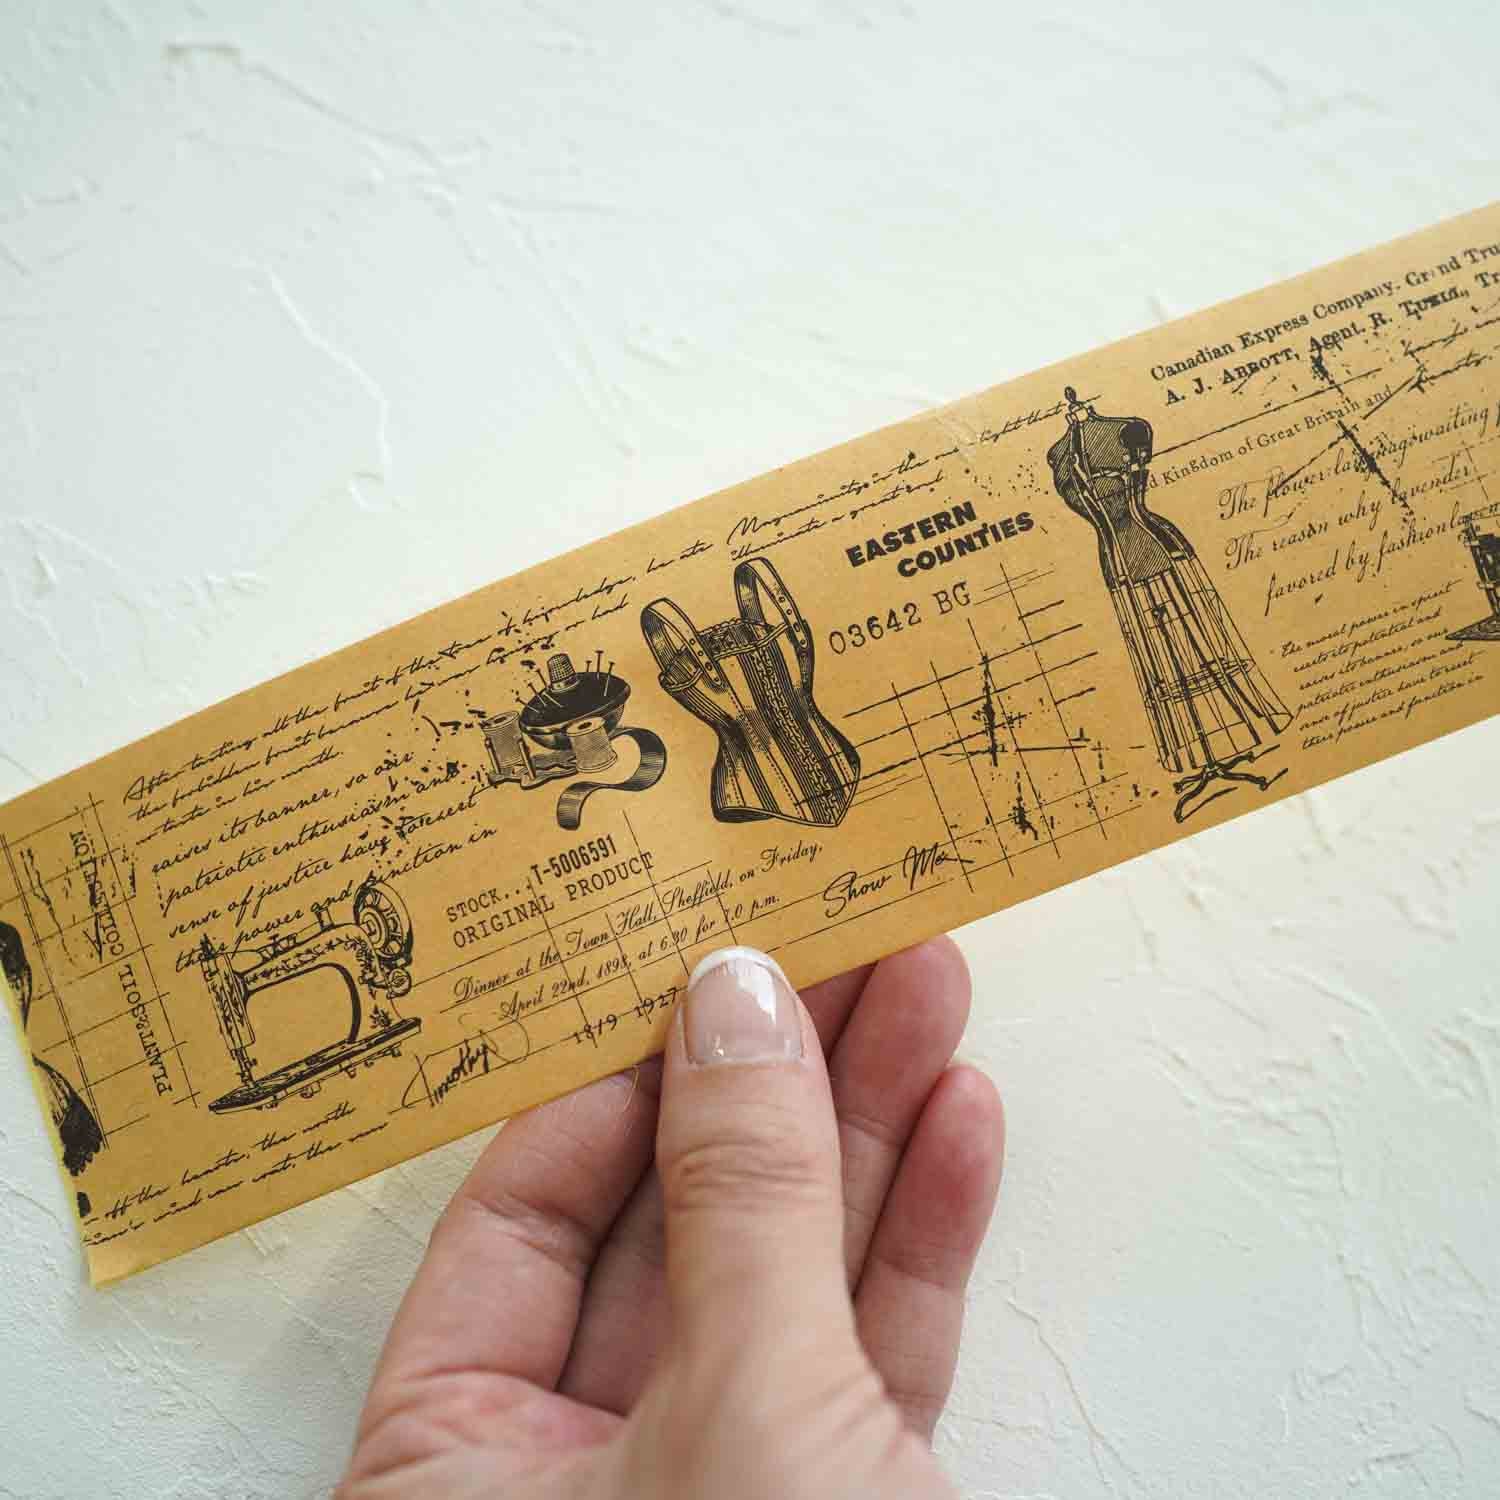 PLANT&SOIL COLLECTION
After tasting all the fruit of the tree of knowledge, he ate
the forbidden fruit because he was having or had
taste in his mouth.
raises its banner, so our
patriotic enthusiasm and
sense of justice have to exert
their power and function in
off the hearts, the north
wind was out, the sun
Timothy
STOCK...T-5006591
ORIGINAL PRODUCT
Dinner at the Town Hall, Sheffield, on Friday,
April 22nd, 1898, at 6.30 for 7.0 p.m.
1879 1927
Show Me
Magnanimity in the one light that
illuminate a great soul
EASTERN
COUNTIES
03642 BG
Canadian Express Company. Grand Tru
A. J. ABBOTT, Agent. R. Tr
d Kingdom of Great Britain and
The flower language waiting
The reason why lavender
favored by fashion
The moral power in spirit
exerts its potential and
raises its banner, so our
patriotic enthusiasm and
sense of justice have to exert
their power and function in